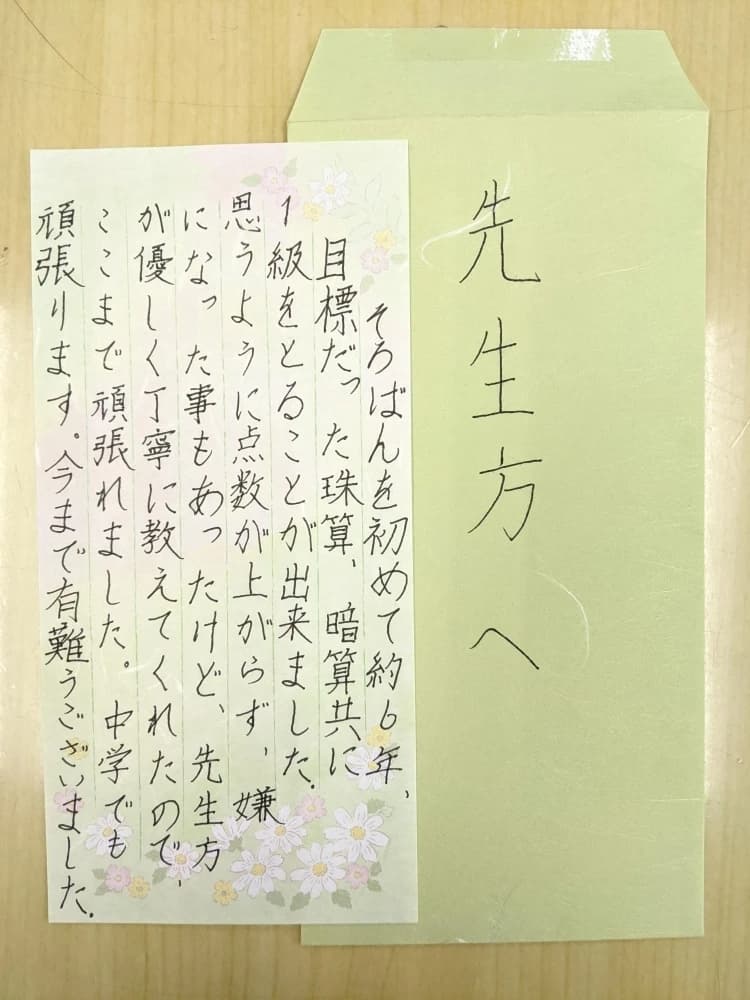 先生方へ
そろばんを初めて約6年、
目標だった珠算、暗算共に
1級をとることが出来ました。
思うように点数が上がらず、嫌
になった事もあったけど、先生方
が優しく丁寧に教えてくれたので、
ここまで頑張れました。中学でも
頑張ります。今まで有難うございました。